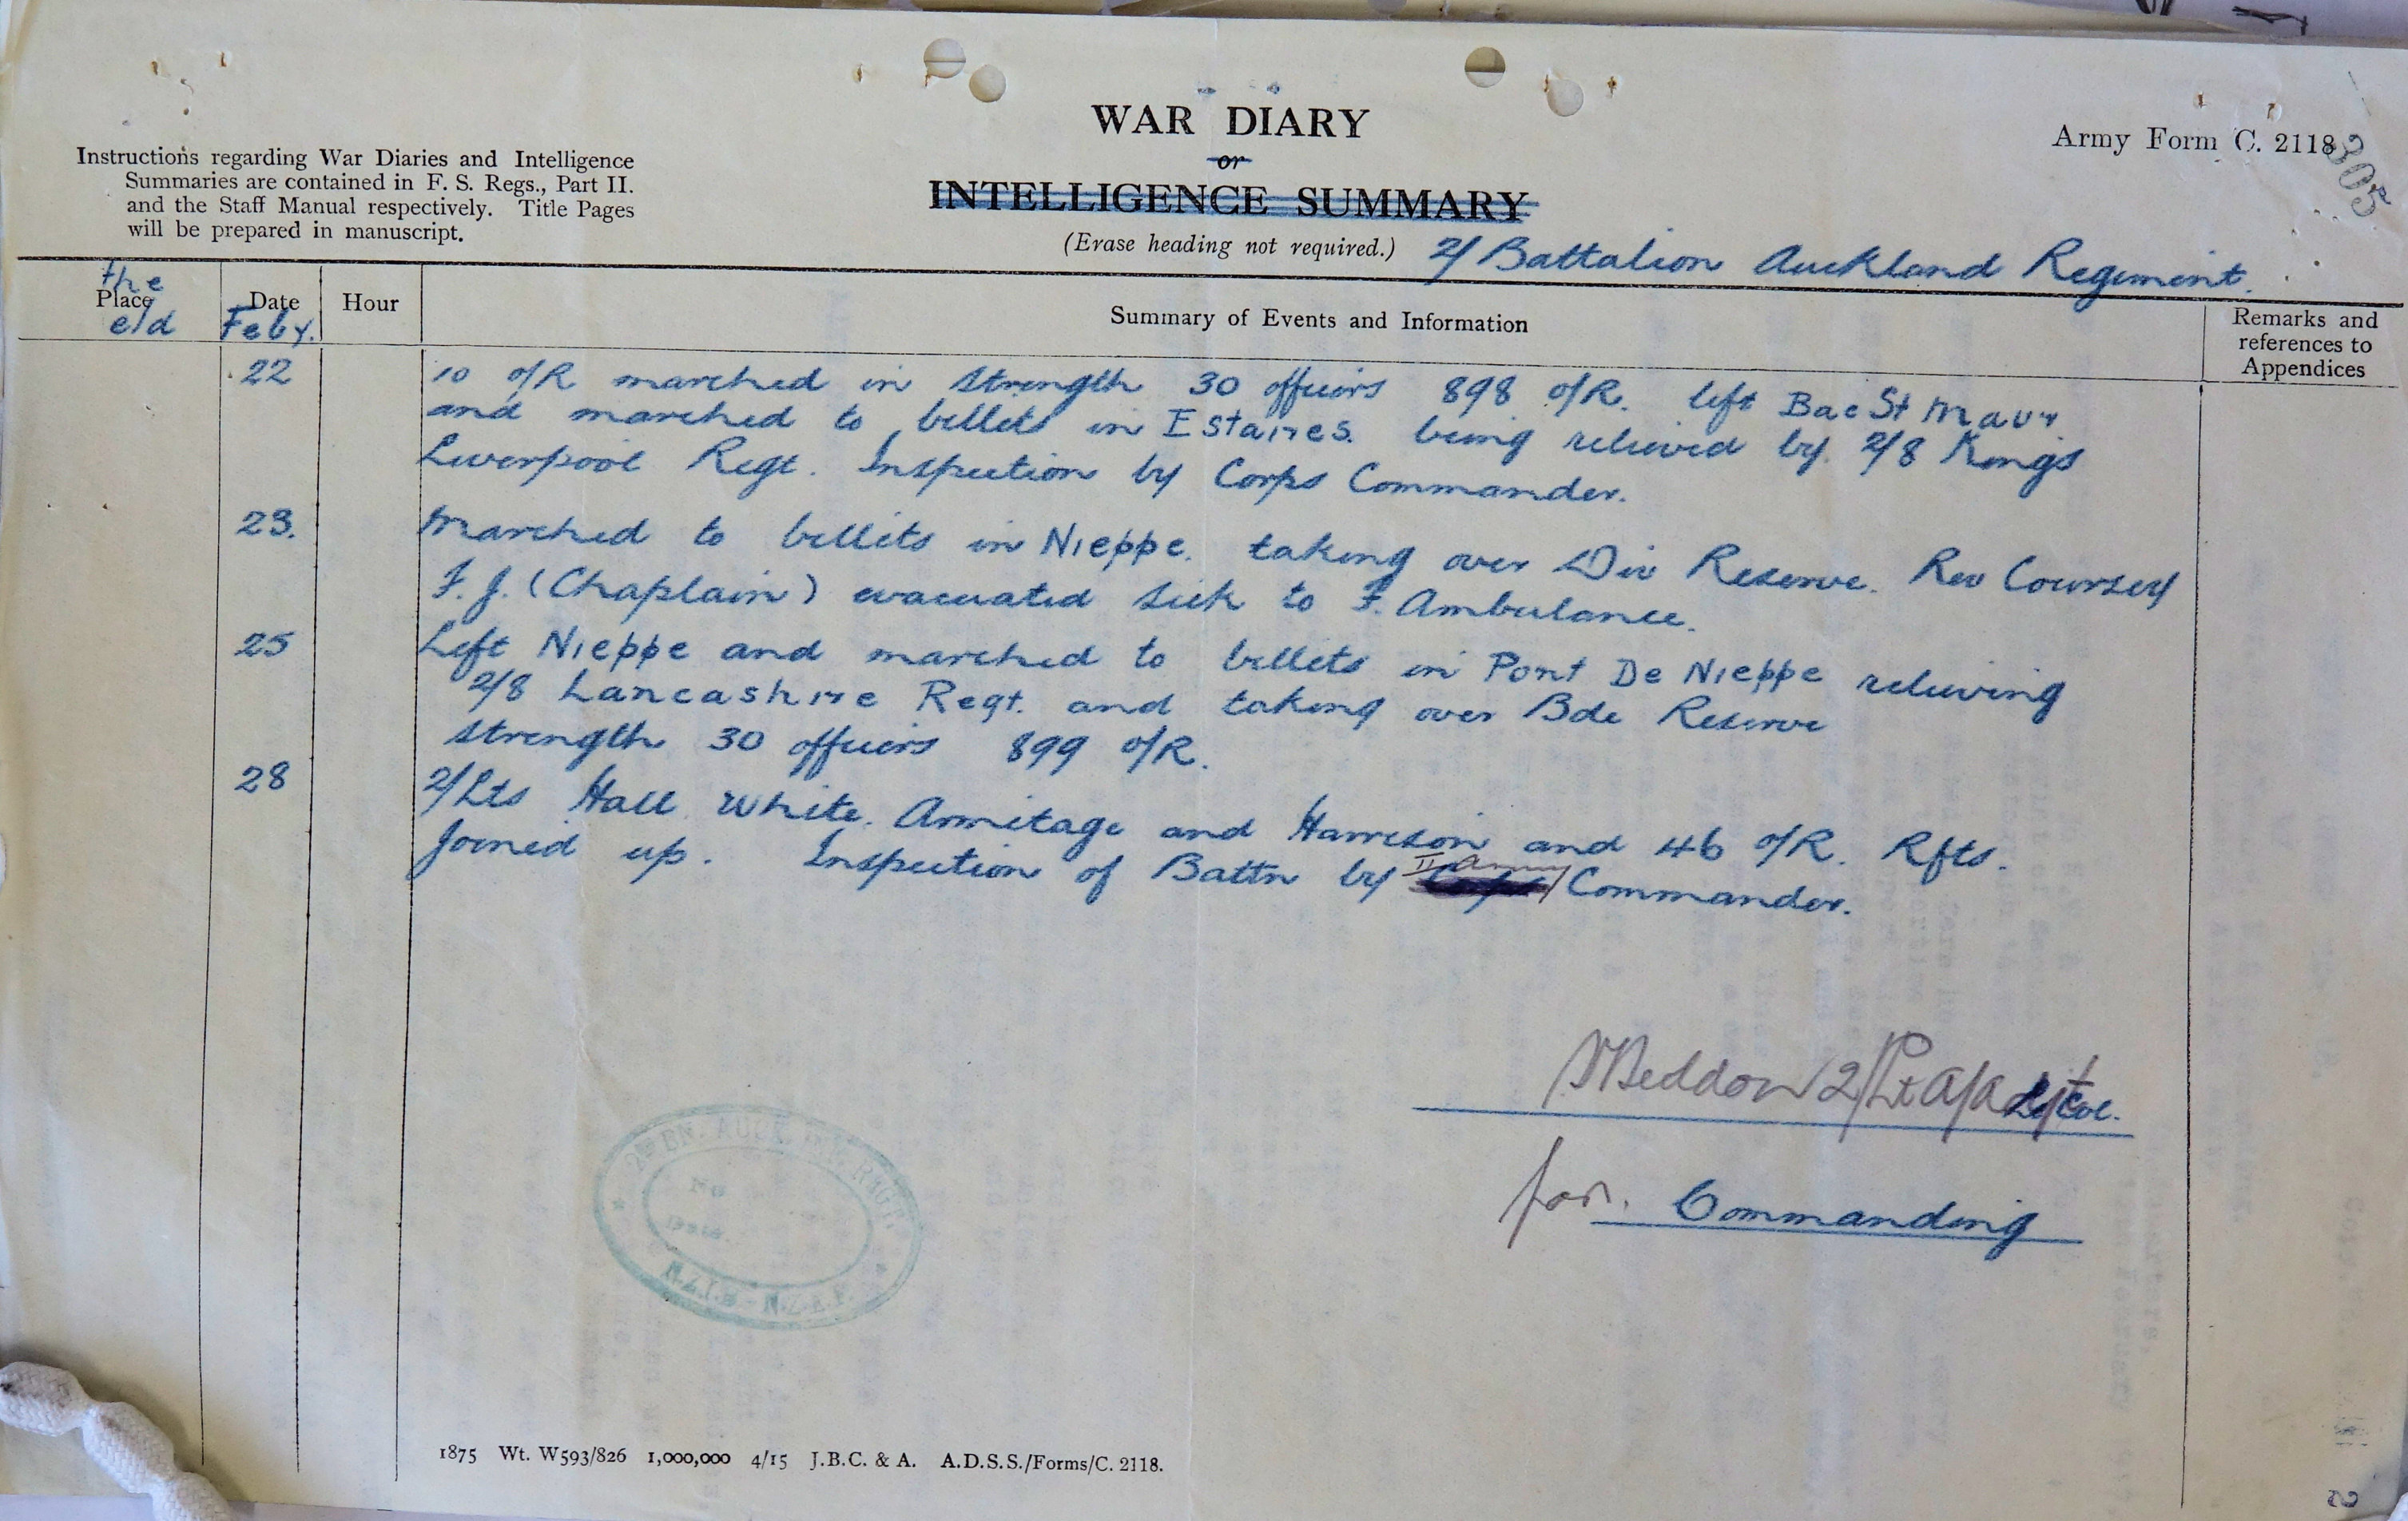 WAR DIARY
or
INTELLIGENCE SUMMARY
(Erase heading not required.)
Army Form C. 2118
305
Instructions regarding War Diaries and Intelligence
Summaries are contained in F. S. Regs., Part II.
and the Staff Manual respectively. Title Pages
will be prepared in manuscript.
2/ Battalion Auckland Regiment.
the
Place
eld
Date
Feby.
Hour
Summary of Events and Information
Remarks and
references to
Appendices
22
10 O/R marched in Strength 30 officers 898 O/R. left Bac St Maur
and marched to billets in Estaires. being relieved by 2/8 Kings
Liverpool Regt. Inspection by Corps Commander.
23.
Marched to billets in Nieppe. taking over Div Reserve. Rev
F. J. (Chaplain) evacuated sick to F. Ambulance.
25
Left Nieppe and marched to billets in Pont De Nieppe relieving
2/8 Lancashire Regt. and taking over Bde Reserve
Strength 30 officers 899 O/R.
28
2/Lts Hall White. Armitage and Harrison and 46 O/R. Rfts.
Joined up. Inspection of Battn by II Army Commander.
2/Lt a/Adjt
Lt Col.
for. Commanding
2ND BN. AUCK. INF. REGT.
No
Date.
N.Z.I.B - N.Z.E.F.
1875 Wt. W593/826 1,000,000 4/15 J.B.C. & A. A.D.S.S./Forms/C. 2118.